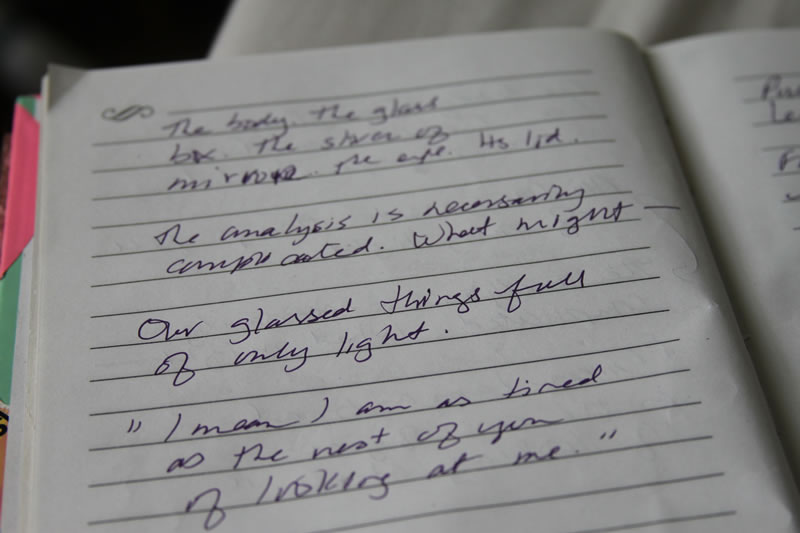 The body. The glass
box. The sliver of
mirror. The eye. Its lid.
The analysis is necessarily
complicated. What might —
Our glassed things full
of only light.
"I mean I am as tired
as the rest of you
of looking at me."